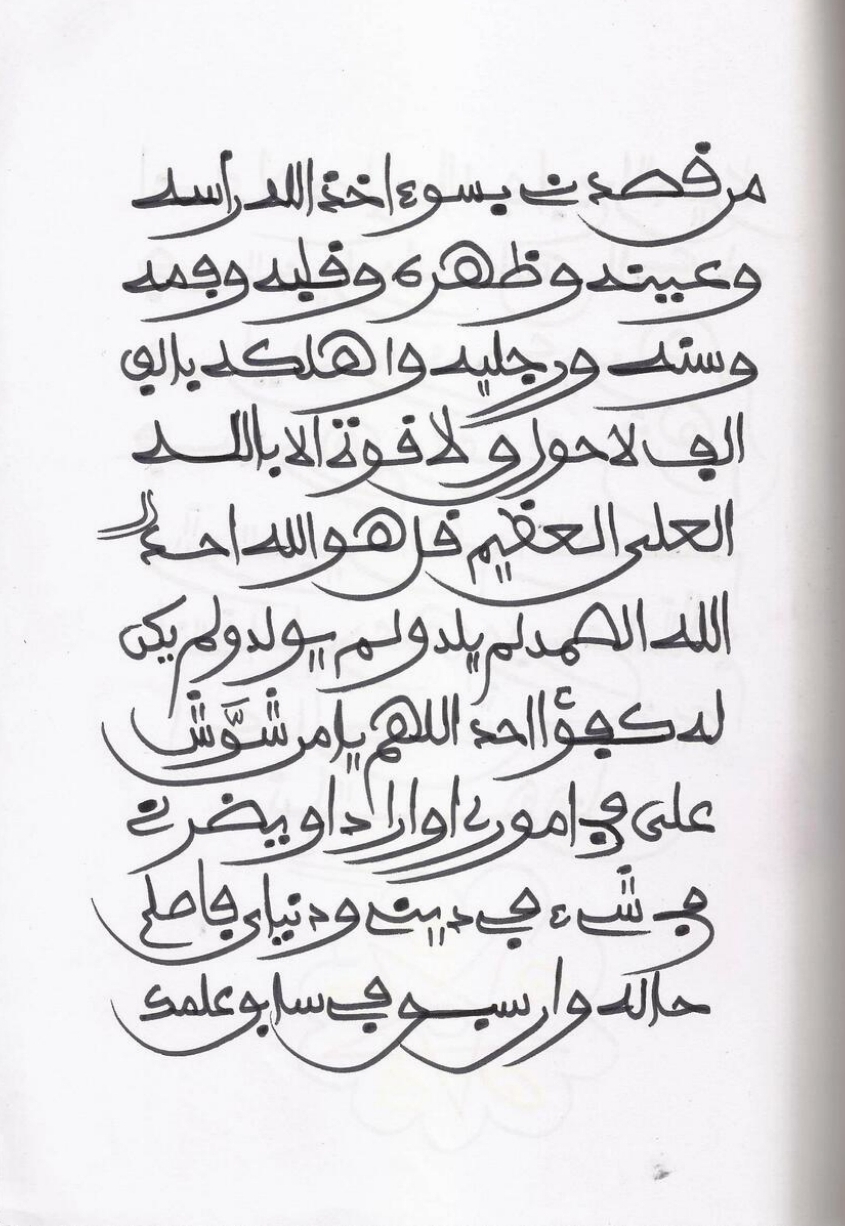 من قصدني بسوء اخذ الله راسه
وعينه وظهره وقلبه وفمه
وسنه ورجليه واهلكه بالف
الف لا حول ولا قوة الا بالله
العلى العظيم قل هو الله احد
الله الصمد لم يلد ولم يولد ولم يكن
له كفؤا احد اللهم يا من شَوَّش
على في امورى او اراد او يضرني
في شىء في دينى ودنياى فاصلح
حاله وان سبق في سابق علمك